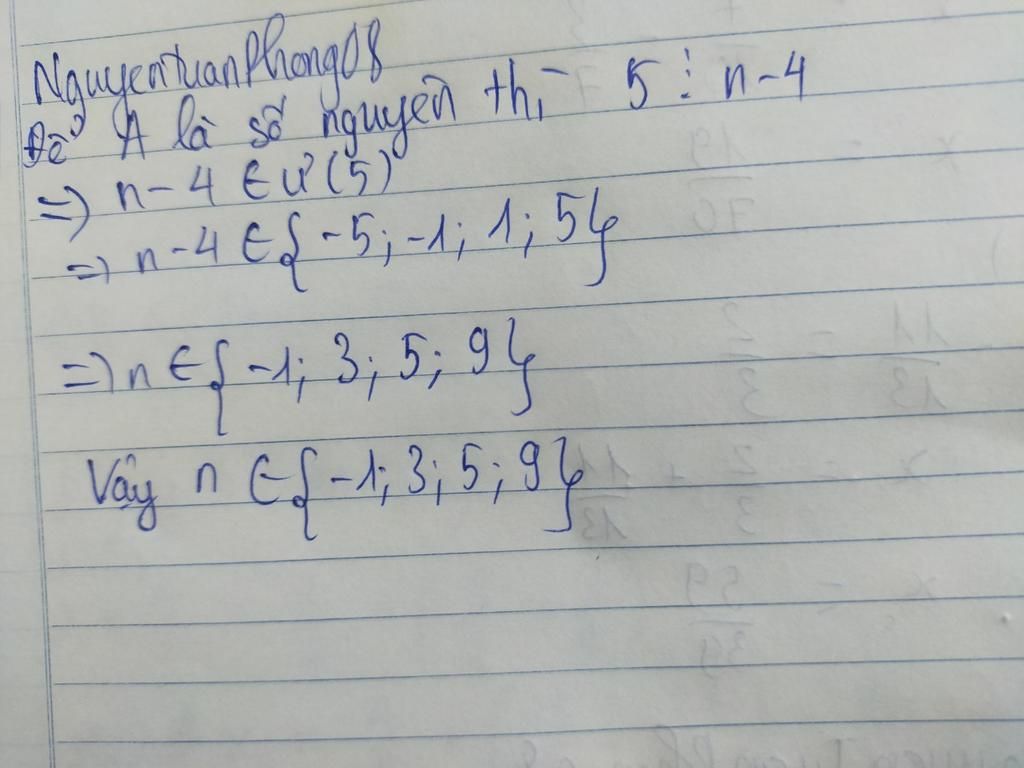 NguyenTuanPhong08
Để A là số nguyên thì 5 ⋮ n-4
=> n-4 ∈ Ư(5)
=> n-4 ∈ {-5; -1; 1; 5}
=> n ∈ {-1; 3; 5; 9}
Vậy n ∈ {-1; 3; 5; 9}